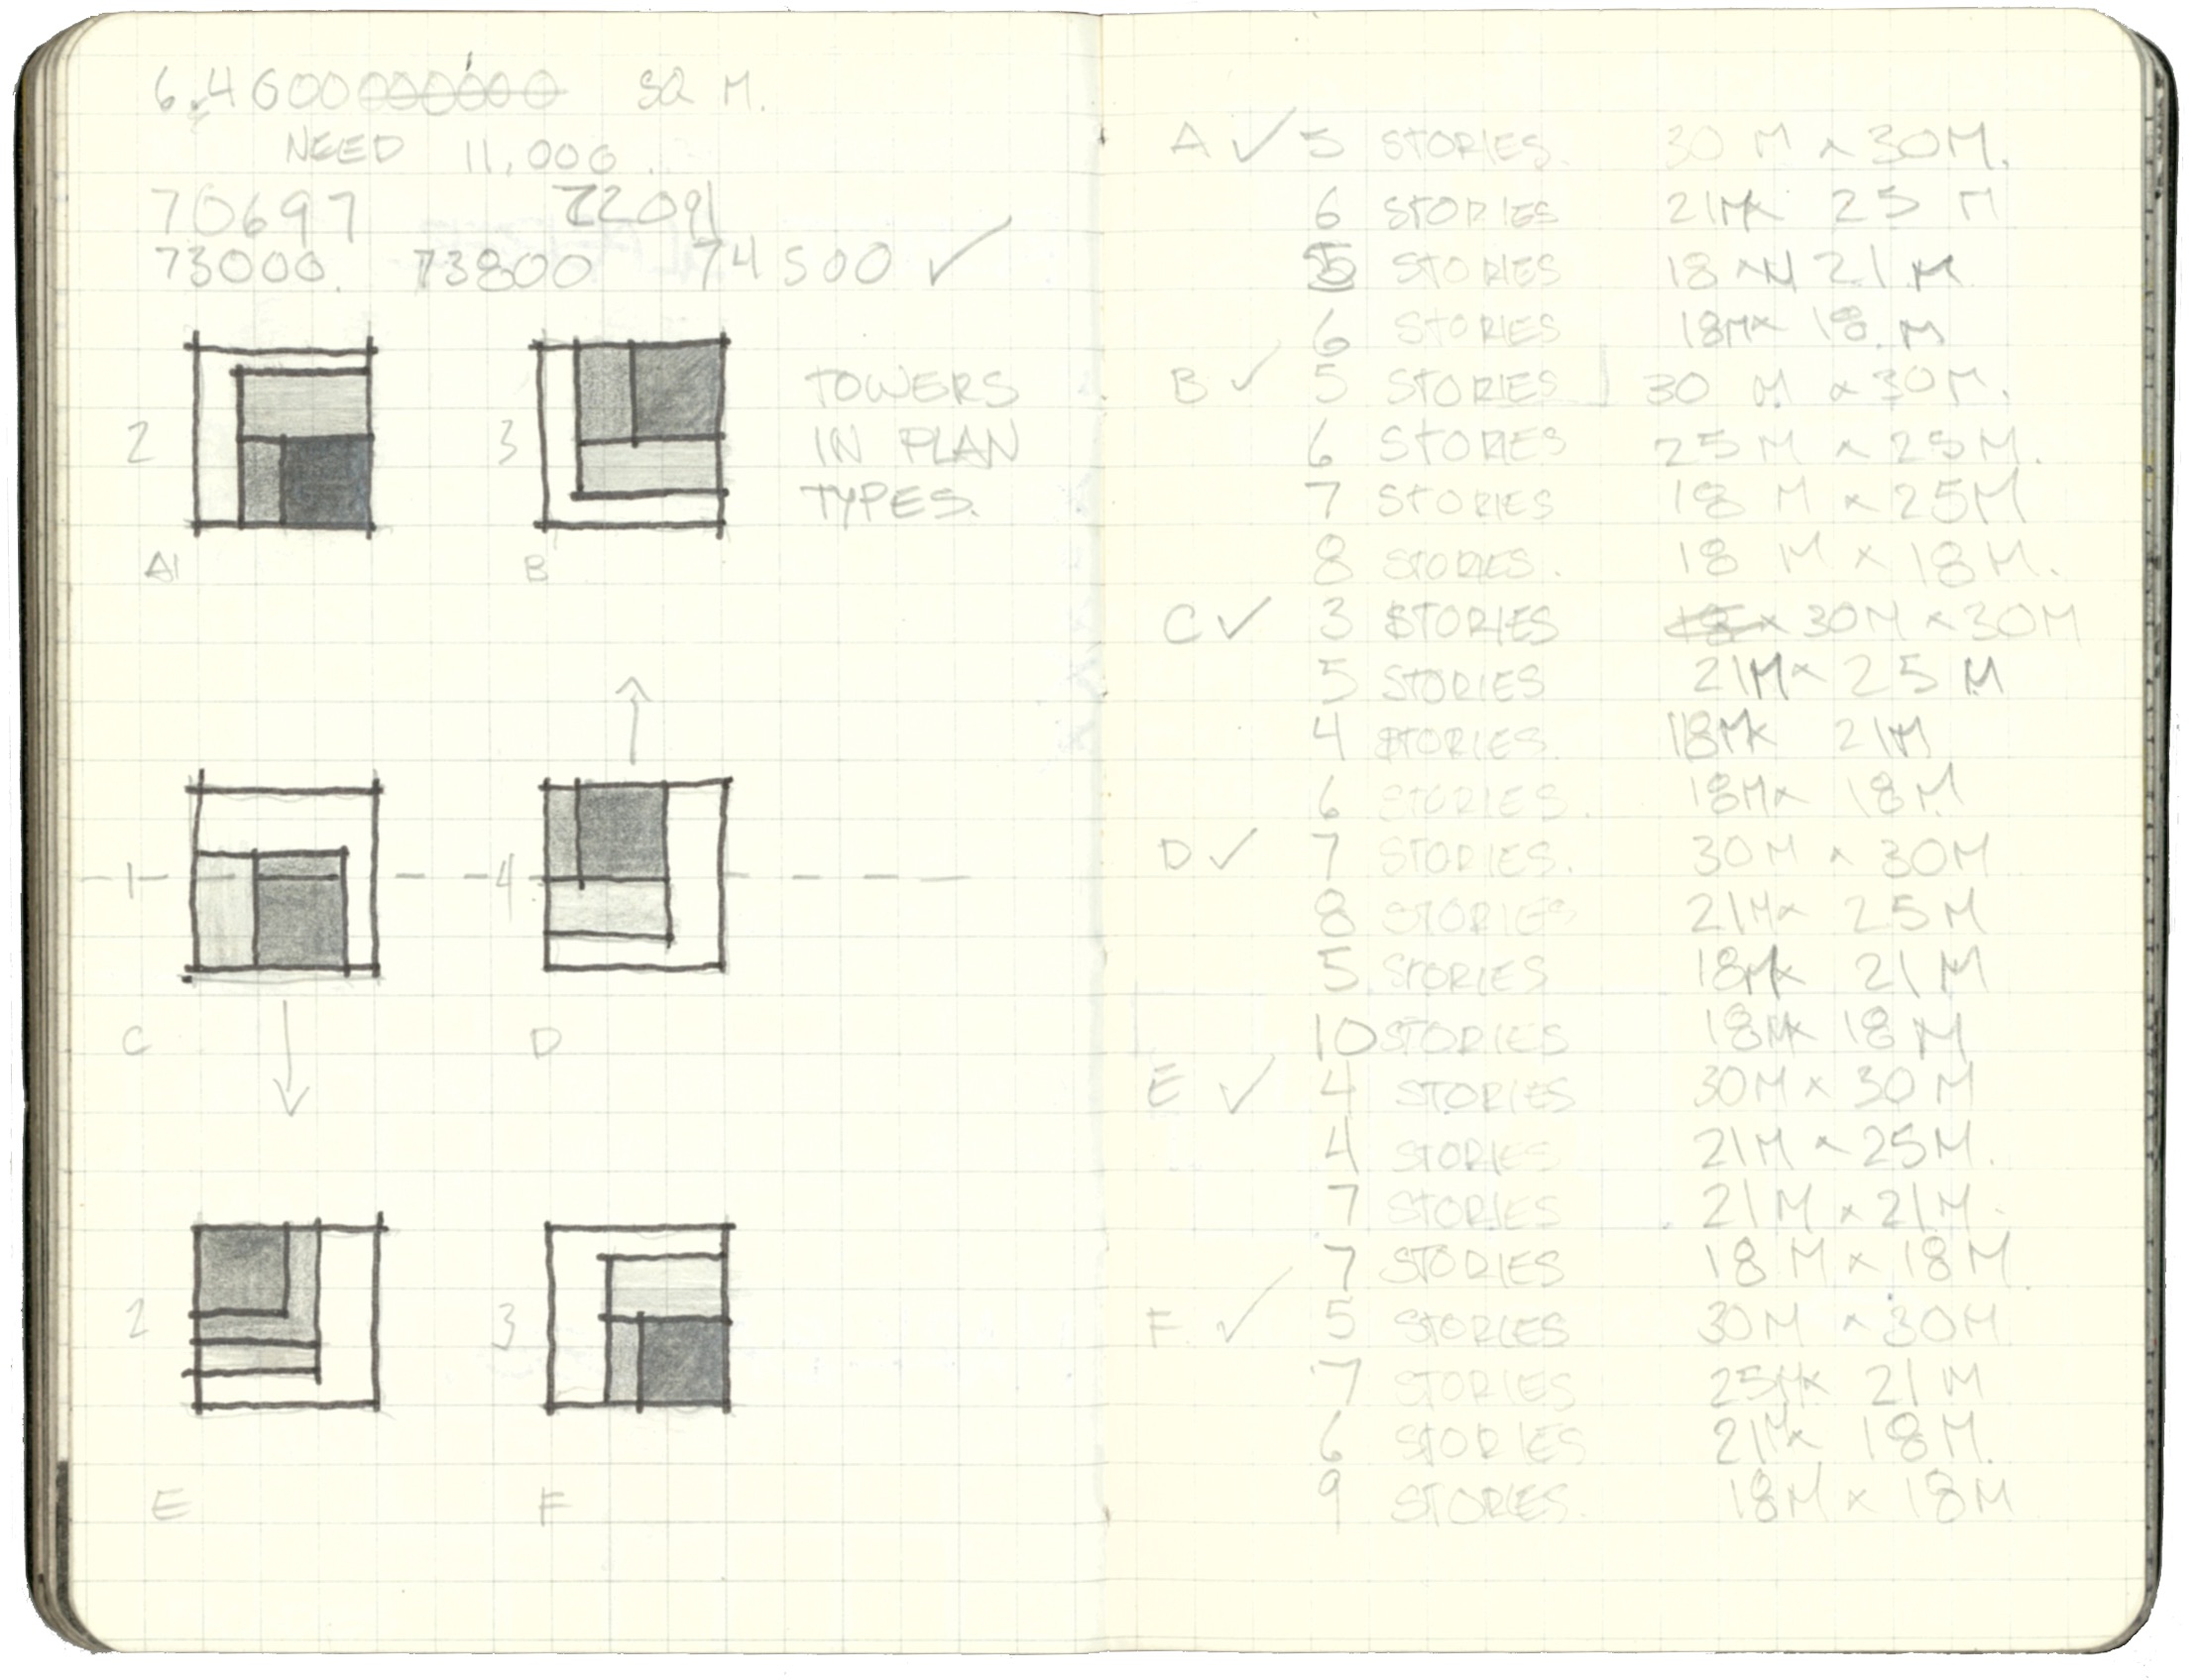 6,4600 SQ M.
NEED 11,000.
70697 72091
73000. 73800 74500 ✓
2 3 TOWERS
IN PLAN
TYPES.
A1 B
1 4
C D
2 3
E F
A ✓ 5 STORIES. 30 M x 30M.
6 STORIES 21M x 25 M
5 STORIES 18 x M 21 M
6 STORIES 18M x 18. M
B ✓ 5 STORIES 30 M x 30M.
6 STORIES 25 M x 25M.
7 STORIES 18 M x 25M
8 STORIES. 18 M x 18M.
C ✓ 3 STORIES 30M x 30M
5 STORIES 21M x 25 M
4 STORIES. 18M x 21M
6 STORIES. 18M x 18M
D ✓ 7 STORIES. 30M x 30M
8 STORIES 21M x 25M
5 STORIES 18M x 21M
10 STORIES 18M x 18 M
E ✓ 4 STORIES 30M x 30 M
4 STORIES 21M x 25M.
7 STORIES 21M x 21M.
7 STORIES 18 M x 18M
F. ✓ 5 STORIES 30M x 30M
7 STORIES 25M x 21M
6 STORIES 21M x 18M.
9 STORIES. 18M x 18M